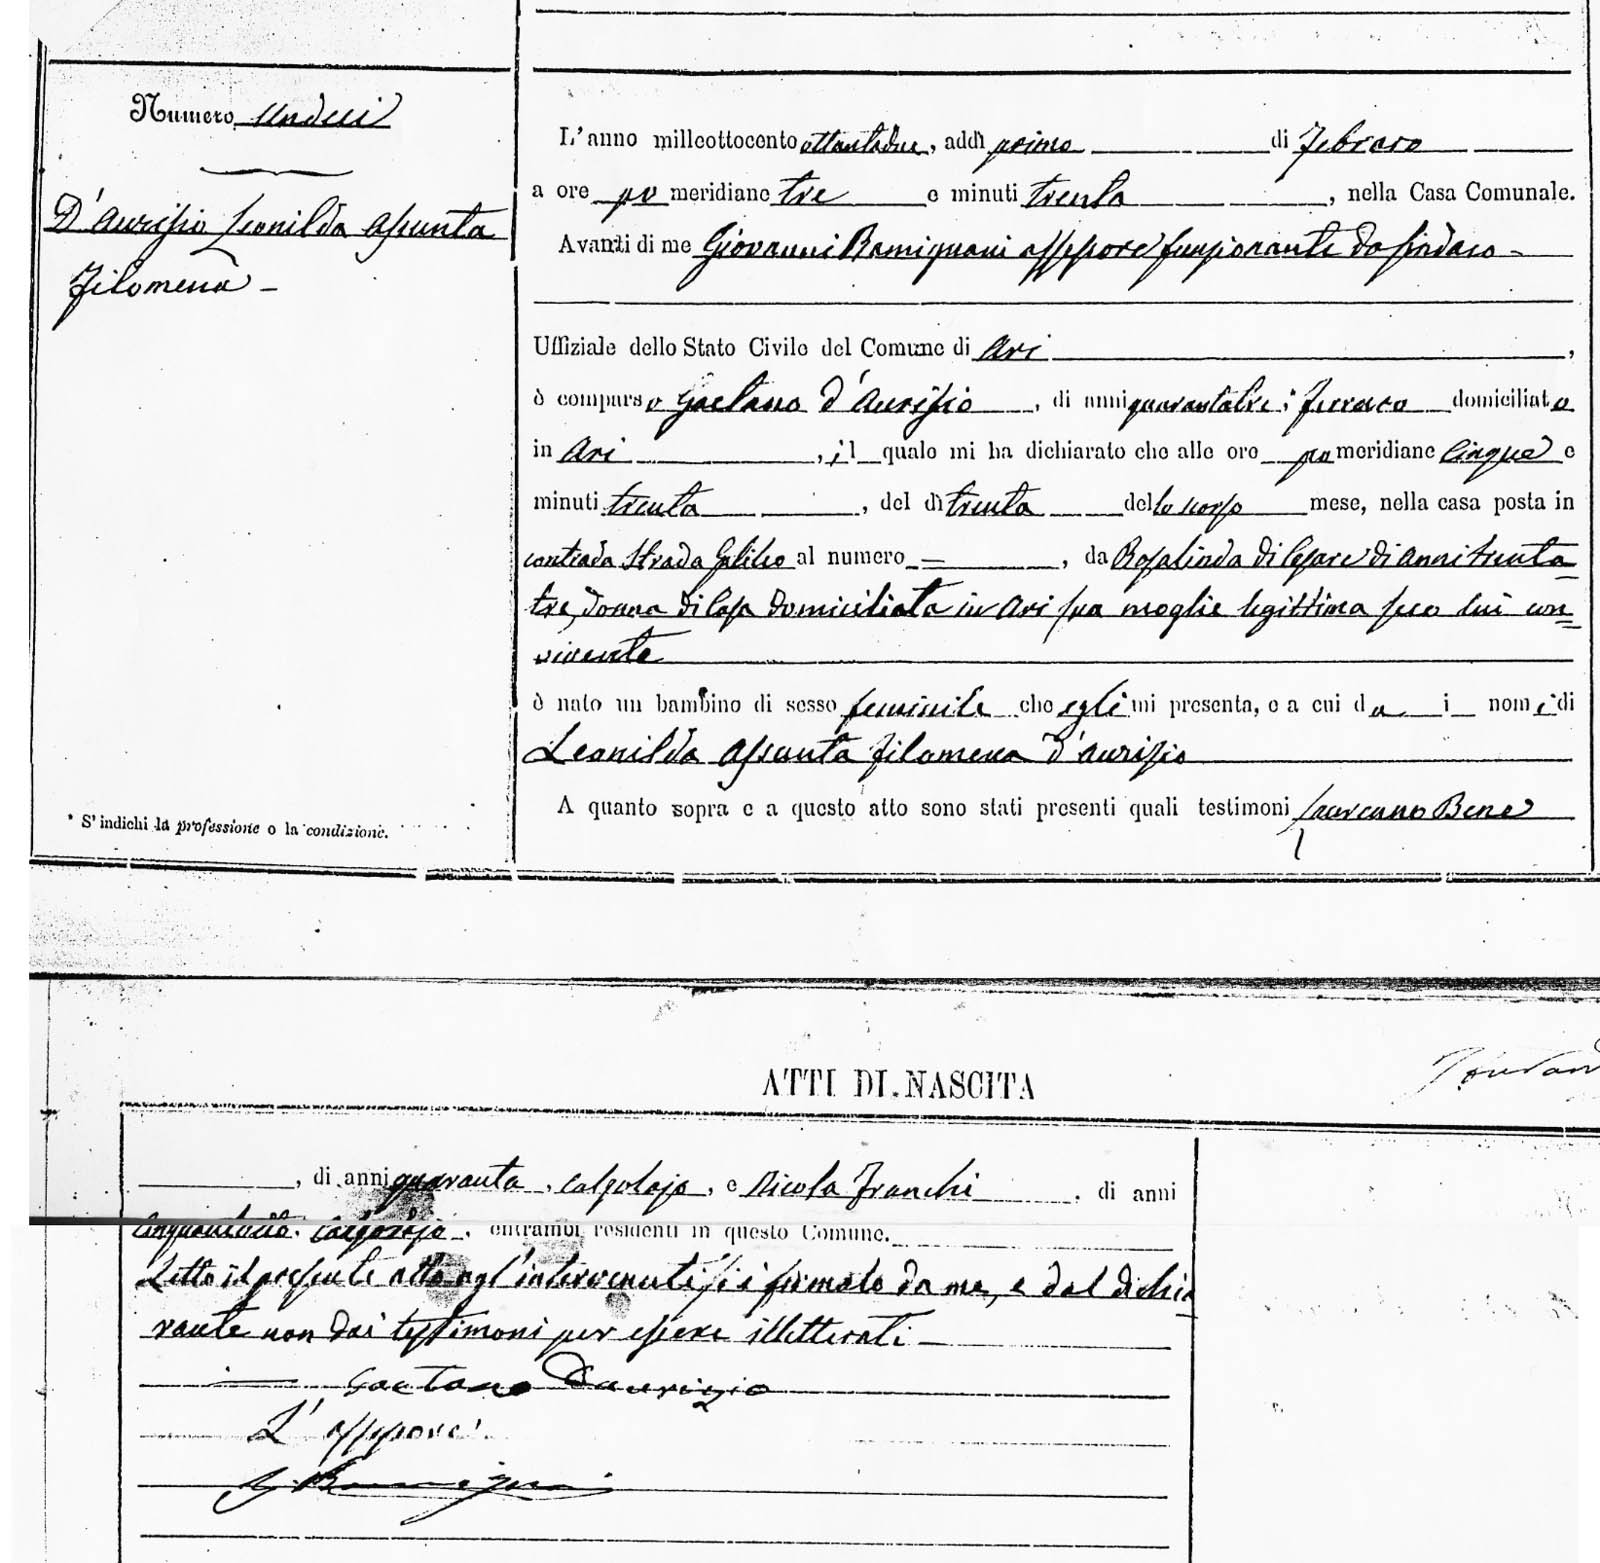 Numero undici
D'Aurizio Leonilda Assunta
Filomena -
* S'indichi la professione o la condizione.
L'anno milleottocento ottantadue, addì primo di Febraro
a ore po meridiane tre e minuti trenta, nella Casa Comunale.
Avanti di me Giovanni Ramignani assessore funzionante da sindaco -
Uffiziale dello Stato Civile del Comune di Ari,
è comparso Gaetano d'Aurizio, di anni quarantatre; domiciliato
in Ari, il quale mi ha dichiarato che alle ore po meridiane cinque e
minuti trenta, del dì trenta dello scorso mese, nella casa posta in
contrada Strada Galileo al numero =, da Rosalinda di Cesare di anni trenta=
tre, donna di casa domiciliata in Ari sua moglie legittima seco lui con=
vivente
è nato un bambino di sesso feminile che egli mi presenta, e a cui da i nomi di
Leonilda Assunta Filomena d'Aurizio
A quanto sopra e a questo atto sono stati presenti quali testimoni Bene
ATTI DI NASCITA
, di anni quaranta, calzolajo, e Nicola Franchi, di anni
calzolajo, entrambi residenti in questo Comune.
Letto il presente atto agl'intervenuti si è firmato da me, e dal dichia
rante non dai testimoni per essere illetterati -
Gaetano Daurizio
L'assessore
G. Ramignani